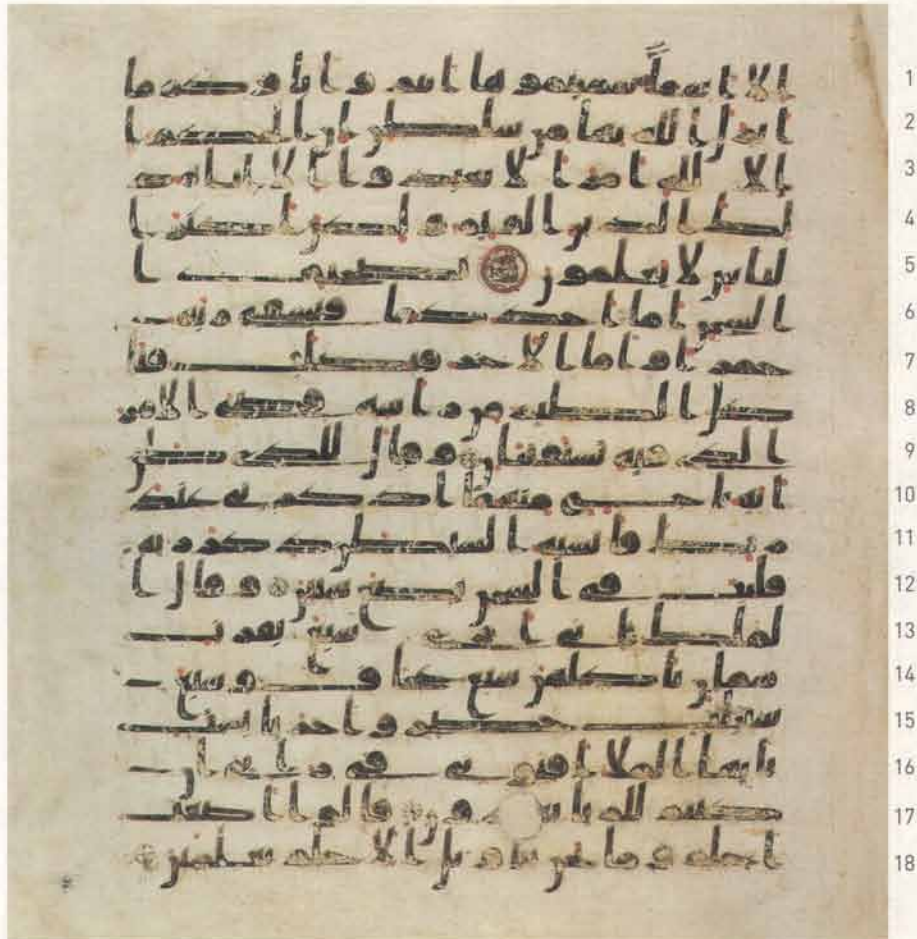 الا اسما سميتموها انتم و اباوكم ما
انزل الله بها من سلطن ان الحكم ا
لا لله امر الا تعبدوا الا اياه ذ
لك الدين القيم و لكن اكثر ا
لناس لا يعلمون يصحبي ا
لسجن اما احدكما فيسقي ربه
خمرا و اما الاخر فيصلب فتا
كل الطير من راسه قضي الامر
الذي فيه تستفتيان و قال للذي ظن
انه ناج منهما اذكرني عند
ربك فانسيه الشيطن ذكر ربه
فلبث في السجن بضع سنين و قال ا
لملك اني ارى سبع بقرت
سمان ياكلهن سبع عجاف و سبع
سنبلت خضر و اخر يابست
يايها الملا افتوني في ريي ان
كنتم للريا تعبرون قالوا اضغث
احلم و ما نحن بتاويل الاحلم بعلمين
1
2
3
4
5
6
7
8
9
10
11
12
13
14
15
16
17
18